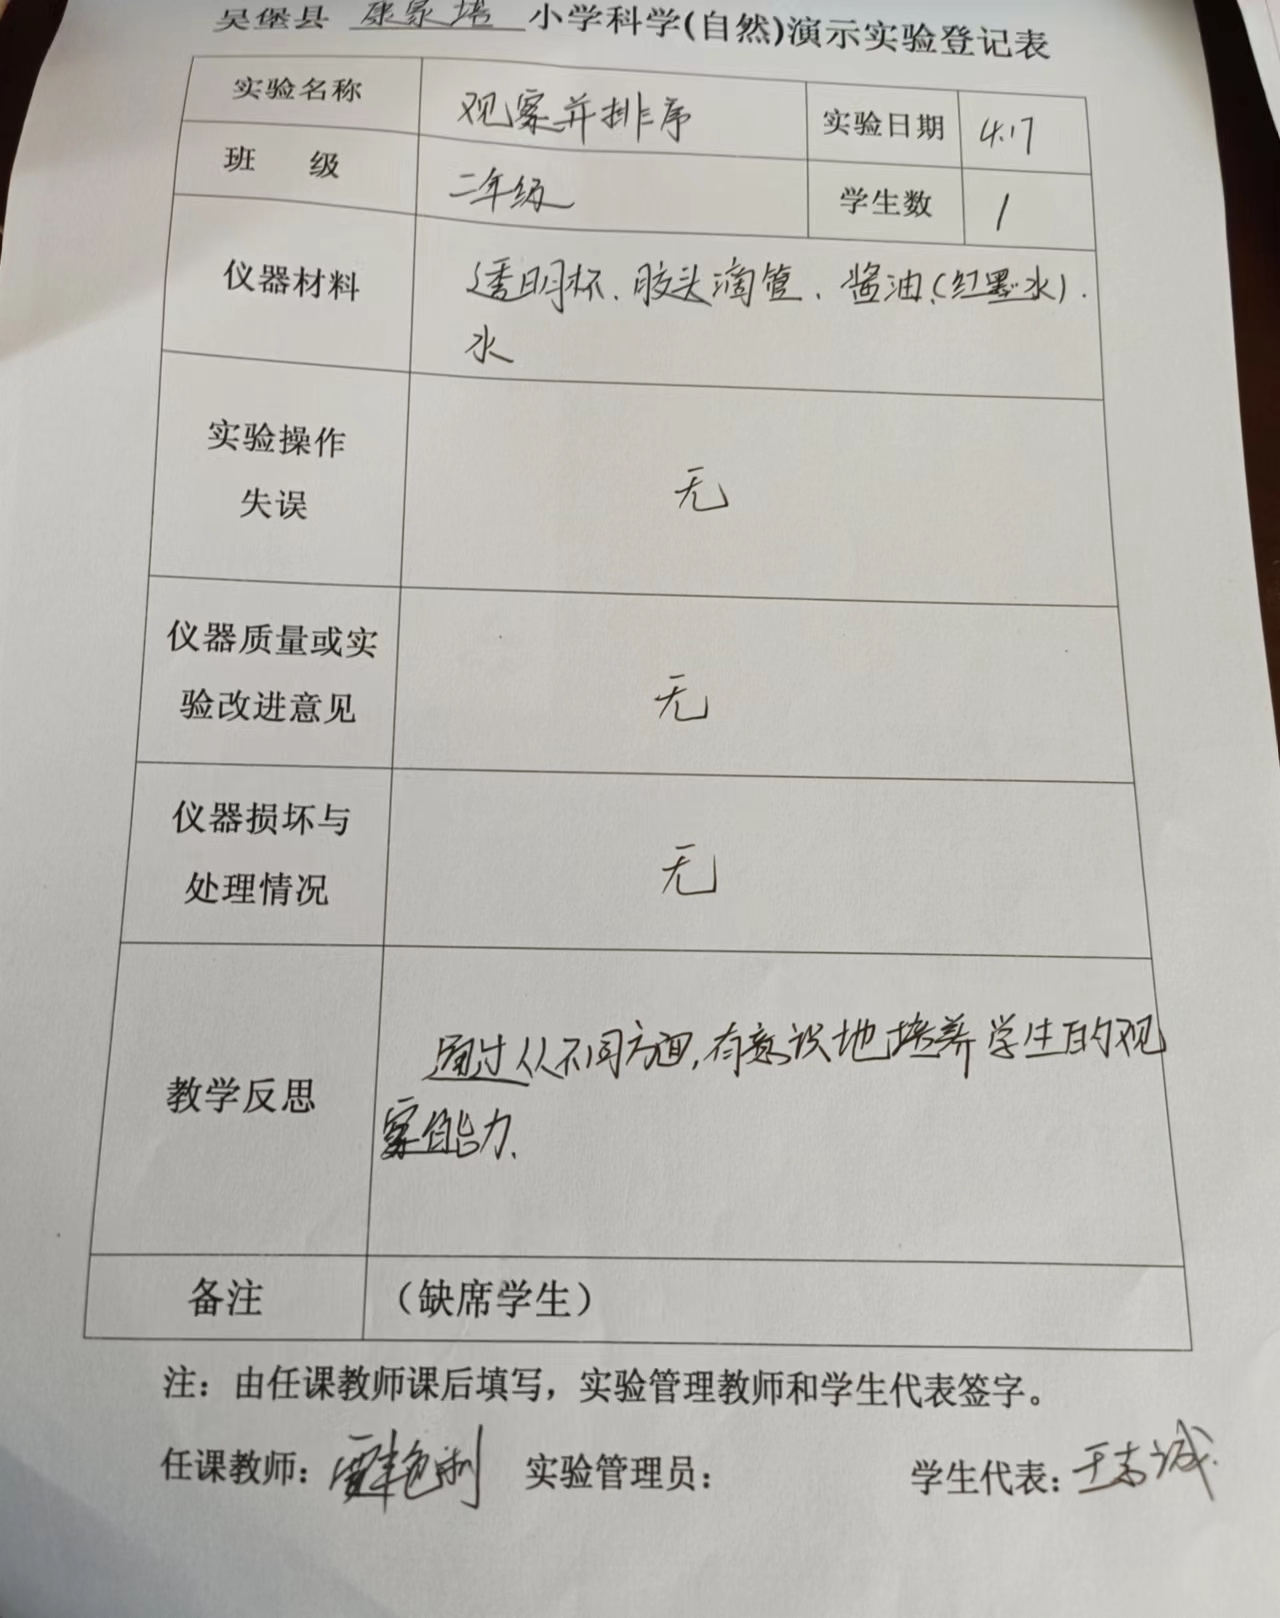 吴堡县 康家塔 小学科学(自然)演示实验登记表
实验名称 观察并排序 实验日期 4.17
班 级 二年级 学生数 1
仪器材料 透明杯、胶头滴管、酱油、(红墨水)、
水
实验操作
失误 无
仪器质量或实
验改进意见 无
仪器损坏与
处理情况 无
教学反思 通过从不同方面,有意识地培养学生的观
察能力、
备注 (缺席学生)
注：由任课教师课后填写，实验管理教师和学生代表签字。
任课教师： 实验管理员： 学生代表：